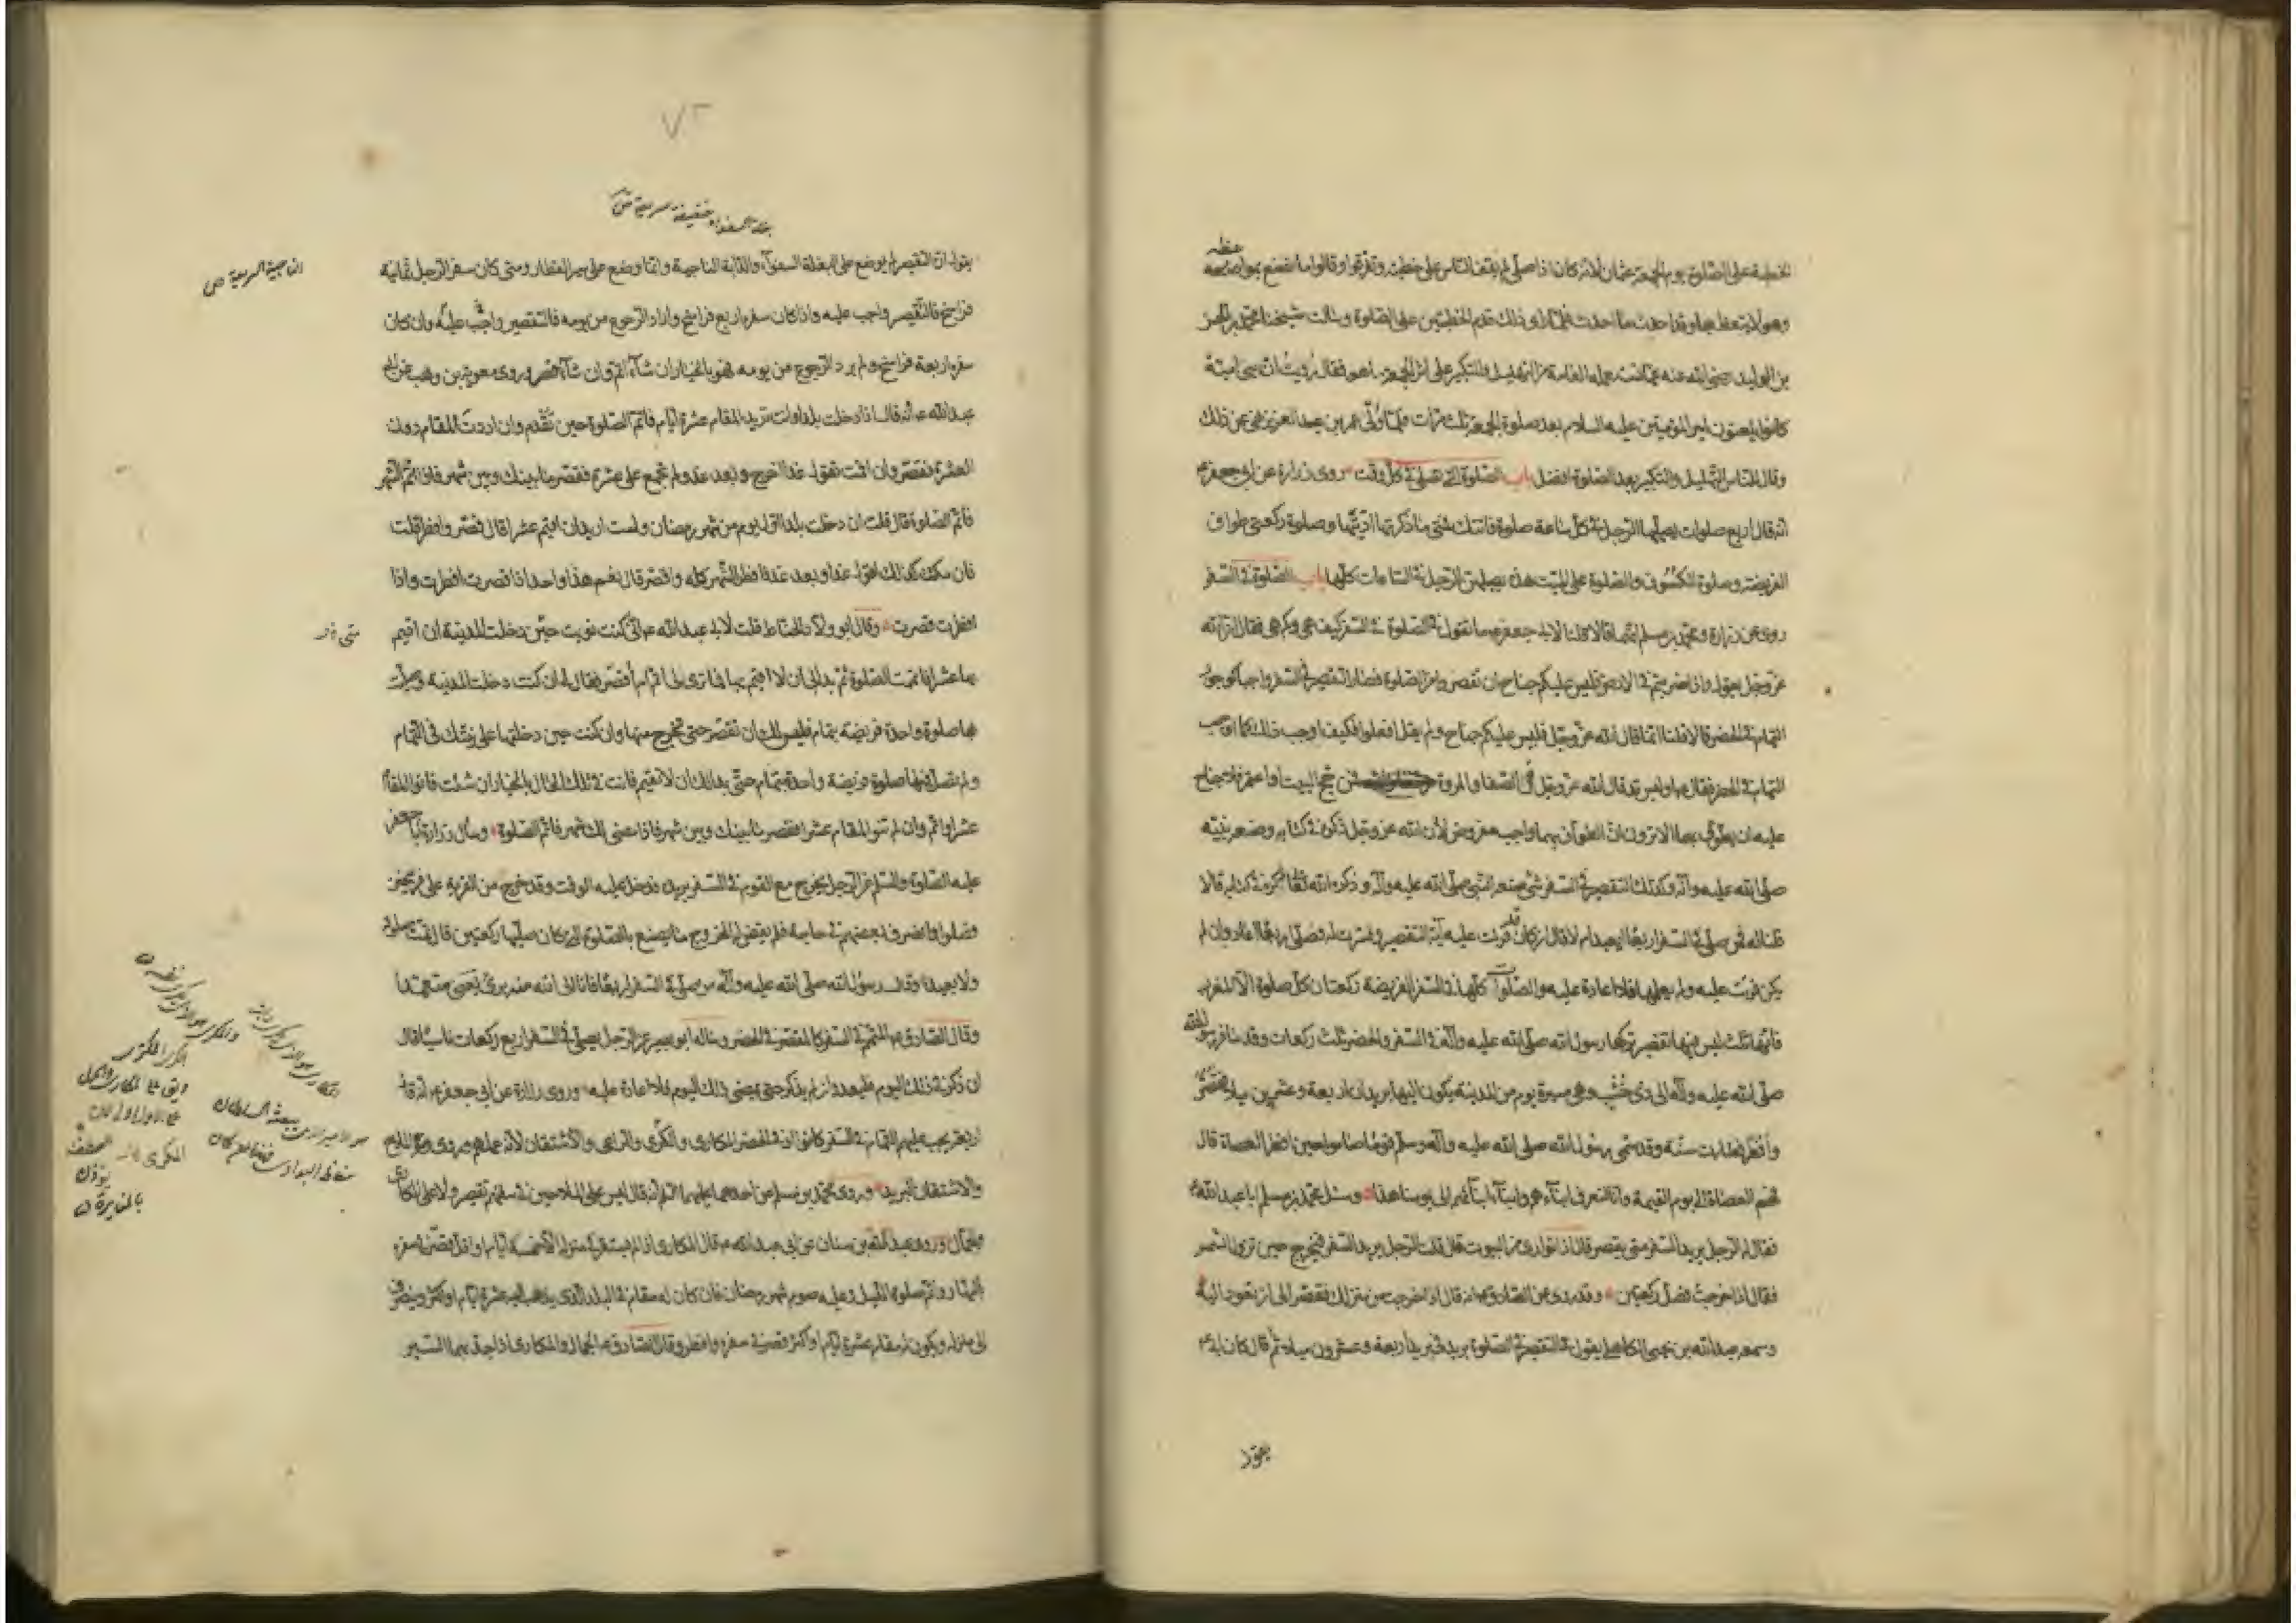 الخطبة على الصلوة يوم الجمعة عثمان لانه كان اذا صلى لم يقف الناس على خطبته وتفرقوا وقالوا ما نصنع بمواعظه
وهو لا يتعظ بها وقد احدث ما احدث فلما رأى ذلك قدم الخطبتين على الصلوة وسألت شيخنا محمد بن الحسن
بن الوليد رضى الله عنه عما يستعمله العامة من التهليل والتكبير على اثر الجمعة ما هو فقال رويت ان بنى امية
كانوا يلعنون امير المؤمنين عليه السلام بعد صلوة الجمعة ثلث مرات فلما ولى عمر بن عبد العزيز نهى عن ذلك
وقال للناس التهليل والتكبير بعد الصلوة افضل باب الصلوة التى تصلى فى كل وقت روى زرارة عن ابى جعفر ع
انه قال اربع صلوات يصليها الرجل فى كل ساعة صلوة فاتتك فمتى ما ذكرتها اديتها وصلوة ركعتى طواف
الفريضة وصلوة الكسوف والصلوة على الميت هذه يصليهن الرجل فى الساعات كلها باب الصلوة فى السفر
روى عن زرارة ومحمد بن مسلم انهما قالا قلنا لابى جعفر ع ما تقول فى الصلوة فى السفر كيف هى وكم هى فقال ان الله
عز وجل يقول واذا ضربتم فى الارض فليس عليكم جناح ان تقصروا من الصلوة فصار التقصير فى السفر واجبا كوجوب
التمام فى الحضر قالا قلنا انما قال الله عز وجل فليس عليكم جناح ولم يقل افعلوا فكيف اوجب ذلك كما اوجب
التمام فى الحضر فقال ع اوليس قد قال الله عز وجل فى الصفا والمروة فمن حج البيت او اعتمر فلا جناح
عليه ان يطوف بهما الا ترون ان الطواف بهما واجب مفروض لان الله عز وجل ذكره فى كتابه وصنعه نبيه
صلى الله عليه وآله وكذلك التقصير فى السفر شئ صنعه النبى صلى الله عليه وآله وذكره الله تعالى فى كتابه قالا
قلنا له فمن صلى فى السفر اربعا ايعيد ام لا قال ان كان قد قرئت عليه آية التقصير وفسرت له فصلى اربعا اعاد وان لم
يكن قرئت عليه ولم يعلمها فلا اعادة عليه والصلوات كلها فى السفر الفريضة ركعتان كل صلوة الا المغرب
فانها ثلث ليس فيها تقصير تركها رسول الله صلى الله عليه وآله فى السفر والحضر ثلث ركعات وقد سافر رسول الله
صلى الله عليه وآله الى ذى خشب وهى مسيرة يوم من المدينة يكون اليها بريدان اربعة وعشرين ميلا فقصر
وافطر فصارت سنة وقد سمى رسول الله صلى الله عليه وآله وسلم قوما صاموا حين افطر العصاة قال
فهم العصاة الى يوم القيمة وانا لنعرف ابناءهم وابناء ابنائهم الى يومنا هذا وسئل محمد بن مسلم ابا عبد الله ع
فقال له الرجل يريد السفر متى يقصر قال اذا توارى من البيوت قال قلت الرجل يريد السفر فيخرج حين تزول الشمس
فقال اذا خرجت فصل ركعتين وقد روى عن الصادق ع انه قال اذا خرجت من منزلك فقصر الى ان تعود اليه
وسمعه عبد الله بن يحيى الكاهلى يقول فى التقصير فى الصلوة بريد فى بريد اربعة وعشرون ميلا ثم قال كان ابى ع
يقول
٧٢
يقول ان التقصير لم يوضع على البغلة السفواء والدابة الناجية وانما وضع على سير القطار ومتى كان سفر الرجل ثمانية
فراسخ فالتقصير واجب عليه واذا كان سفره اربع فراسخ واراد الرجوع من يومه فالتقصير واجب عليه وان كان
سفره اربعة فراسخ ولم يرد الرجوع من يومه فهو بالخيار ان شاء اتم وان شاء قصر وروى معوية بن وهب عن ابى
عبد الله ع انه قال اذا دخلت بلدا وانت تريد المقام عشرة ايام فاتم الصلوة حين تقدم وان اردت المقام دون
العشرة فقصر وان اقمت تقول غدا اخرج وبعد غد ولم تجمع على عشرة فقصر ما بينك وبين شهر فاذا تم الشهر
فاتم الصلوة قال قلت ان دخلت بلدا اول يوم من شهر رمضان ولست اريد ان اقيم عشرا قال قصر وافطر قلت
فان مكثت كذلك اقول غدا وبعد غد فافطر الشهر كله واقصر قال نعم هذا واحد اذا قصرت افطرت واذا
افطرت قصرت وقال ابو ولاد الحناط قلت لابى عبد الله ع انى كنت نويت حين دخلت المدينة ان اقيم
بها عشرا فاتممت الصلوة ثم بدا لى ان لا اقيم بها فما ترى لى اتم ام اقصر فقال لى ان كنت دخلت المدينة وصليت
بها صلوة واحدة فريضة بتمام فليس لك ان تقصر حتى تخرج منها وان كنت حين دخلتها على نيتك فى التمام
ولم تصل فيها صلوة فريضة واحدة بتمام حتى بدا لك ان لا تقيم فانت فى تلك الحال بالخيار ان شئت فانو المقام
عشرا واتم وان لم تنو المقام عشرا فقصر ما بينك وبين شهر فاذا مضى لك شهر فاتم الصلوة وسأل زرارة ابا جعفر
عليه الصلوة والسلم عن الرجل يخرج مع القوم فى السفر يريده فدخل عليه الوقت وقد خرج من القرية على فرسخين
فصلوا وانصرف بعضهم فى حاجة فلم يقض له الخروج ما يصنع بالصلوة التى كان صليها ركعتين قال تمت صلوته
ولا يعيد وقال رسول الله صلى الله عليه وآله من صلى فى السفر اربعا فانا الى الله منه برئ يعنى متعمدا
وقال الصادق ع المتمم فى السفر كالمقصر فى الحضر وسأله ابو بصير عن الرجل يصلى فى السفر اربع ركعات ناسيا قال
ان ذكر فى ذلك اليوم فليعد وان لم يذكر حتى يمضى ذلك اليوم فلا اعادة عليه وروى زرارة عن ابى جعفر ع انه قال
اربعة يجب عليهم التمام فى السفر كانوا او فى الحضر المكارى والكرى والراعى والاشتقان لانه عملهم وروى الملاح
والاشتقان البريد وروى محمد بن مسلم عن احدهما عليهما السلم انه قال ليس على الملاحين فى سفينتهم تقصير ولا على المكارى
والجمال وروى عبد الله بن سنان عن ابى عبد الله ع قال المكارى اذا لم يستقر فى منزله الا خمسة ايام او اقل قصر فى سفره
بالنهار واتم صلوة الليل وعليه صوم شهر رمضان فان كان له مقام فى البلد الذى يذهب اليه عشرة ايام او اكثر وينصرف
الى منزله ويكون له مقام عشرة ايام او اكثر قصر فى سفره وافطر وقال الصادق ع الجمال والمكارى اذا جد بهما السير